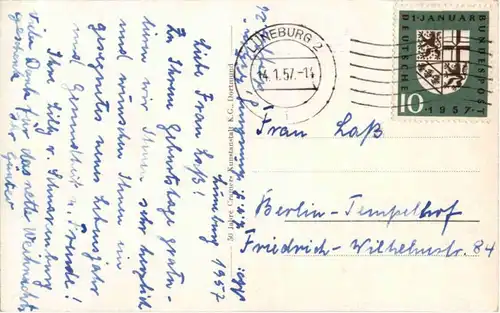 Lüneburg 1957
Liebe Frau Laß!
Zu Ihrem Geburtstage gratu-
lieren wir Ihnen sehr herzlich
und wünschen Ihnen ein
gesegnetes neues Lebensjahr
und Gesundheit u. Freude!
Ihre Lilly v. Schmerenburg
Viele Dank für das nette Weihnachts
geschenk
Günter
50 Jahre Cramers Kunstanstalt K.G. Dortmund
LÜNEBURG 2
14.1.57.-1
1·JANUAR
DEUTSCHE
BUNDESPOST
10
1957
Frau Laß
Berlin-Tempelhof
Friedrich-Wilhelmstr. 84